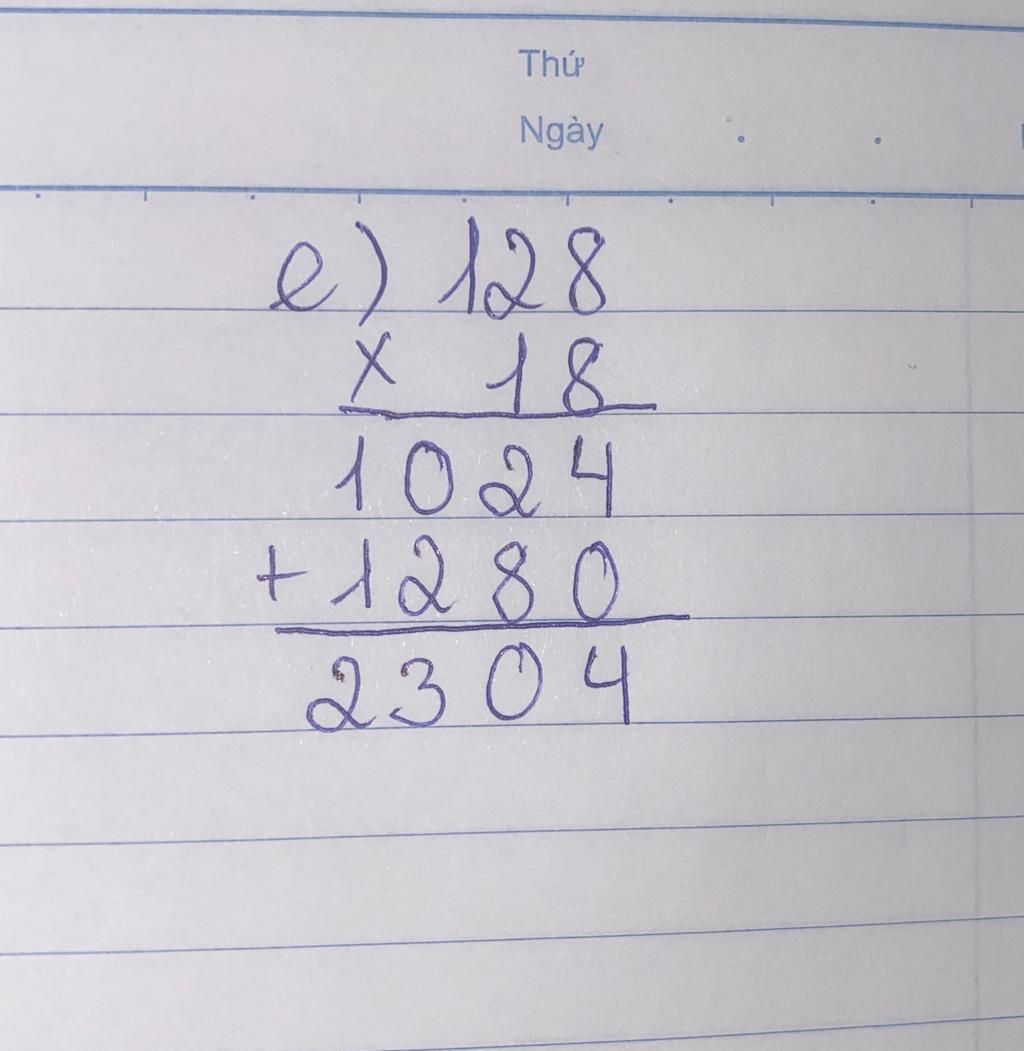 Thứ
Ngày
e) 128
x 18
1024
+ 1280
2304